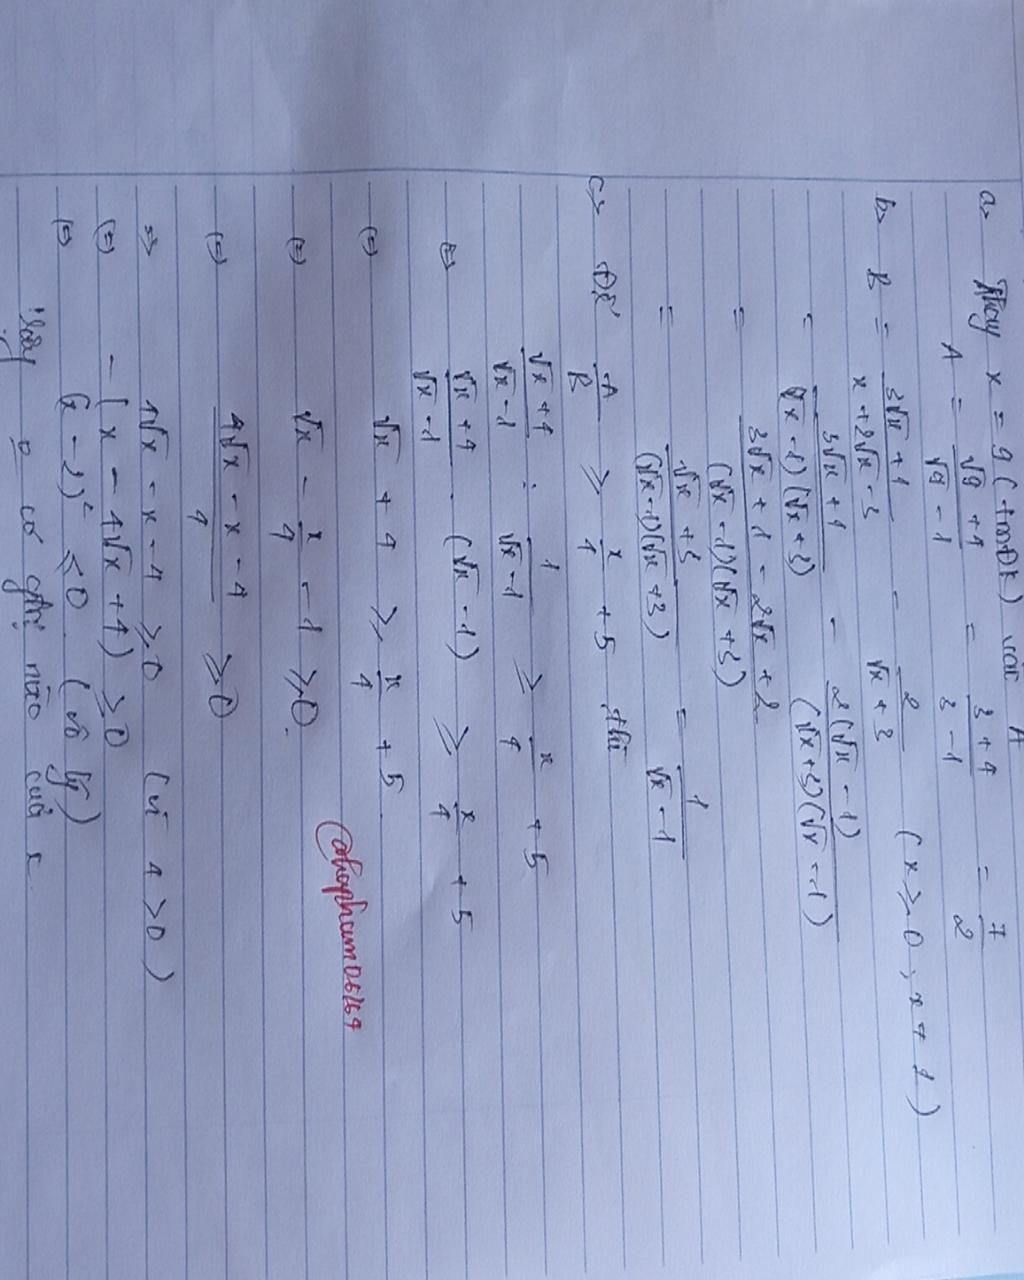 a, Thay x = 9 (tmĐK) vào A
A = \frac{\sqrt{9}+4}{\sqrt{9}-1} = \frac{3+4}{3-1} = \frac{7}{2}
b, B = \frac{3\sqrt{x}+1}{x+2\sqrt{x}-3} - \frac{2}{\sqrt{x}+3} (x ≥ 0, x ≠ 1)
= \frac{3\sqrt{x}+1}{(\sqrt{x}-1)(\sqrt{x}+3)} - \frac{2(\sqrt{x}-1)}{(\sqrt{x}+3)(\sqrt{x}-1)}
= \frac{3\sqrt{x}+1-2\sqrt{x}+2}{(\sqrt{x}-1)(\sqrt{x}+3)}
= \frac{\sqrt{x}+3}{(\sqrt{x}-1)(\sqrt{x}+3)} = \frac{1}{\sqrt{x}-1}
c, Để \frac{A}{B} ≥ \frac{x}{4} + 5 thì
\frac{\sqrt{x}+4}{\sqrt{x}-1} : \frac{1}{\sqrt{x}-1} ≥ \frac{x}{4} + 5
(=) \frac{\sqrt{x}+4}{\sqrt{x}-1} . (\sqrt{x}-1) ≥ \frac{x}{4} + 5
(=) \sqrt{x} + 4 ≥ \frac{x}{4} + 5
@thaopham06164
(=) \sqrt{x} - \frac{x}{4} - 1 ≥ 0.
(=) \frac{4\sqrt{x}-x-4}{4} ≥ 0
=> 4\sqrt{x} - x - 4 ≥ 0 (vì 4 > 0)
(=) -(x - 4\sqrt{x} + 4) ≥ 0
(=) (x - 2)² ≤ 0 (vô lý)
Vậy o có giá trị nào của x